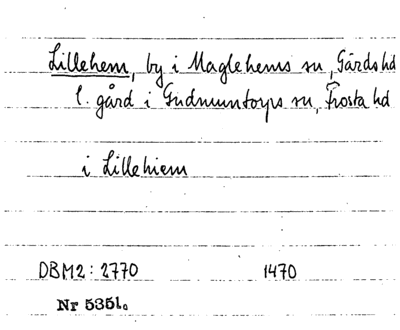 Lillehem, by i Maglehems sn, Gärds hd
l. gård i Gudmuntorps sn, Frosta hd
i Lillehiem
DBM2: 2770 1470
Nr 5351.